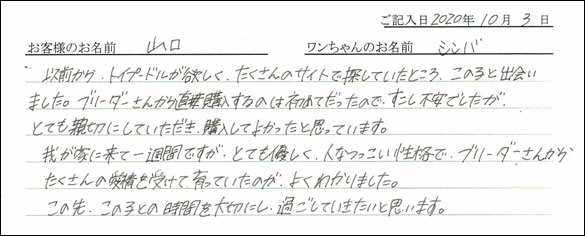 ご記入日2020年10月3日
お客様のお名前 山口 ワンちゃんのお名前 シンバ
以前から、トイプードルが欲しく、たくさんのサイトで探していたところ、この子と出会い
ました。ブリーダーさんから直接購入するのは初めてだったので、すこし不安でしたが、
とても親切にしていただき、購入してよかったと思っています。
我が家に来て一週間ですが、とても優しく、人なつっこい性格で、ブリーダーさんから
たくさんの愛情を受けて育っていたのが、よくわかりました。
この先、この子との時間を大切にし、過ごしていきたいと思います。